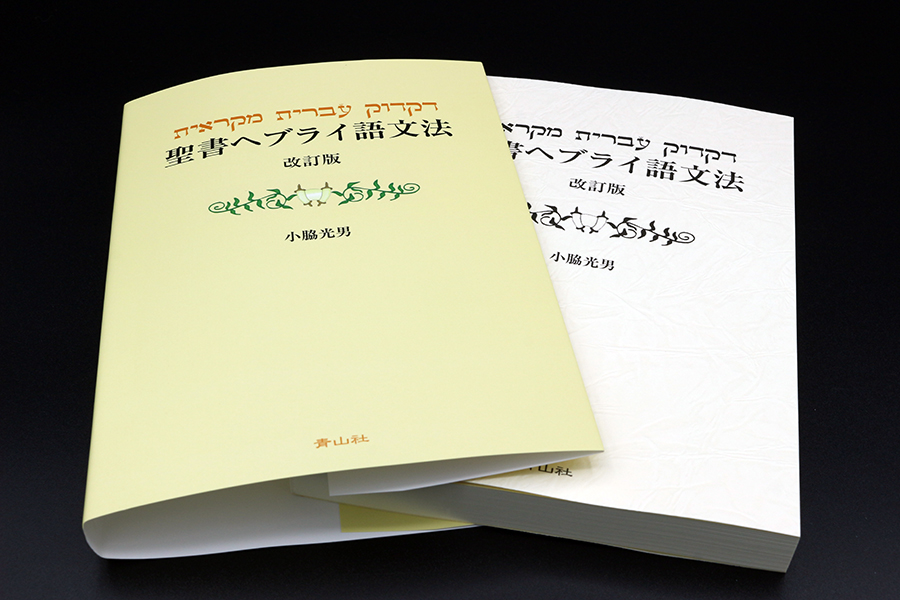 דקדוק עברית מקראית
聖書ヘブライ語文法
改訂版
小脇光男
青山社
דקדוק עברית מקרא
書ヘブライ語文法
改訂版
小脇光男
青山社